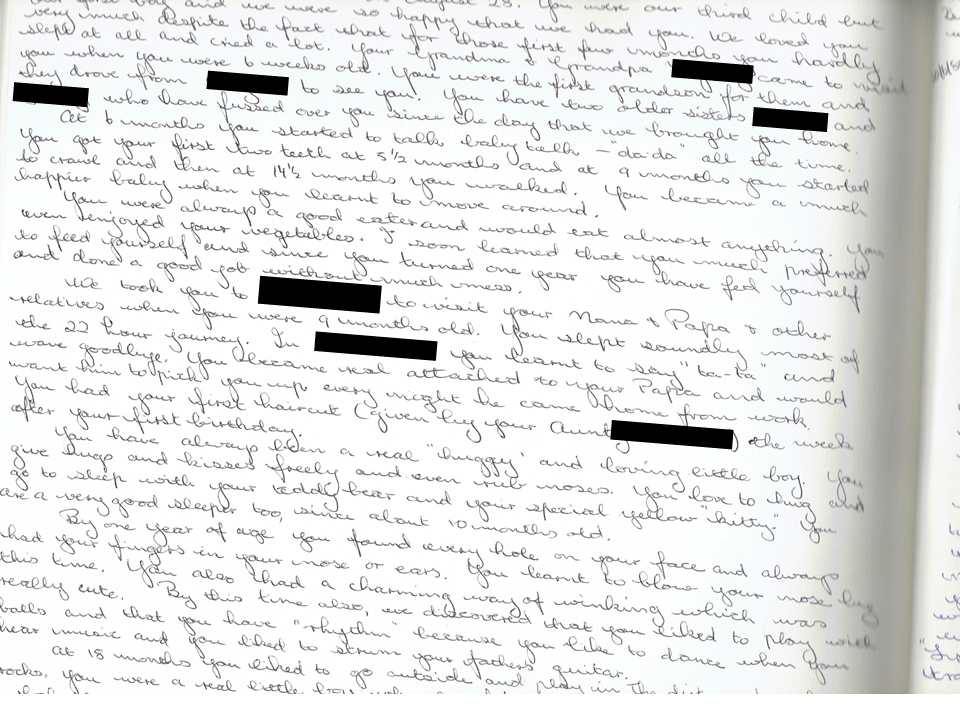 and we were so happy that we had you. We loved you
very much despite the fact that for those first few months you hardly
slept at all and cried a lot. Your Grandma & Grandpa came to visit
you when you were 6 weeks old. You were the first grandson for them and
they drove from to see you. You have two older sisters and
who have fussed over you since the day that we brought you home.
At 6 months you started to talk baby talk – "da da" all the time.
You got your first two teeth at 5 1/2 months and at 9 months you started
to crawl and then at 14 1/2 months you walked. You became a much
happier baby when you learnt to move around.
You were always a good eater and would eat almost anything. You
even enjoyed your vegetables. I soon learned that you much preferred
to feed yourself and since you turned one year you have fed yourself
and done a good job without much mess.
We took you to to visit your Nana & Papa & other
relatives when you were 9 months old. You slept soundly most of
the 22 hour journey. In you learnt to say "ta-ta" and
wave goodbye. You became real attached to your Papa and would
want him to pick you up every night he came home from work.
You had your first haircut (given by your Aunty ) the week
after your first birthday.
You have always been a real "huggy" and loving little boy. You
give hugs and kisses freely and even rub noses. You love to hug and
go to sleep with your teddy bear and your special yellow "kitty." You
are a very good sleeper too, since about 10 months old.
By one year of age you found every hole on your face and always
had your fingers in your nose or ears. You learnt to blow your nose by
this time. You also had a charming way of winking which was
really cute. By this time also, we discovered that you liked to play with
balls and that you have "rhythm" because you like to dance when you
hear music and you liked to strum your fathers guitar.
At 18 months you liked to go outside and play in the dirt
rocks, you were a real little boy